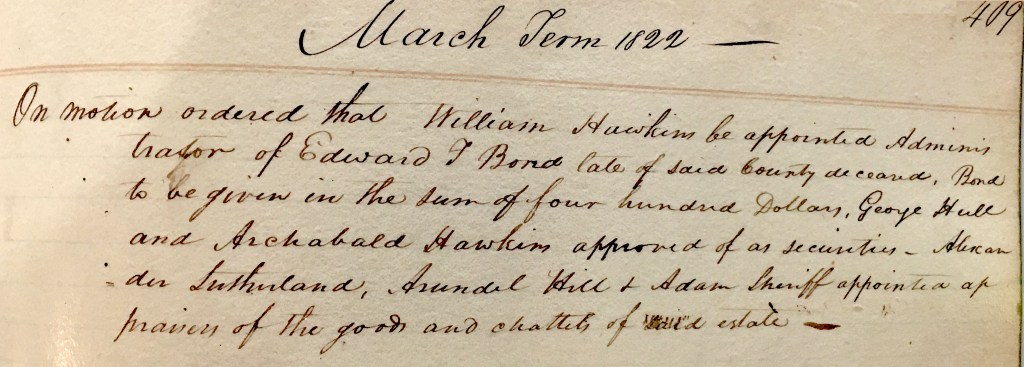 409
March Term 1822 —
On motion ordered that William Hawkins be appointed Adminis
trator of Edward T Bond late of said County deceased, Bond
to be given in the sum of four hundred Dollars, George Hull
and Archabald Hawkins approved of as securities - Alexan
= der Sutherland, Arundel Hill & Adam Sheriff appointed ap
praisers of the goods and chattels of said estate —